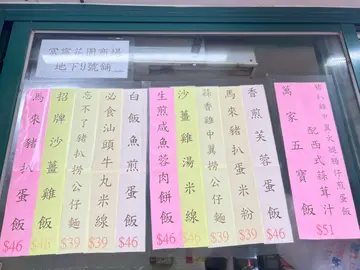 富寧花園商場
地下U號舖
萬家五寶飯
豬扒雞中翼火腿腸仔煎蛋飯
配西式蒜茸汁
$51
香煎芙蓉蛋飯
$46
馬來豬扒米粉
$39
蒜香雞中翼撈公仔麵
$39
沙薑雞湯米線
$46
生煎咸魚蓉肉餅飯
$46
白飯魚煎蛋飯
$46
必食汕頭牛丸米線
$39
忘不了豬扒撈公仔麵
$39
招牌沙薑雞飯
$46
馬來豬扒蛋飯
$46